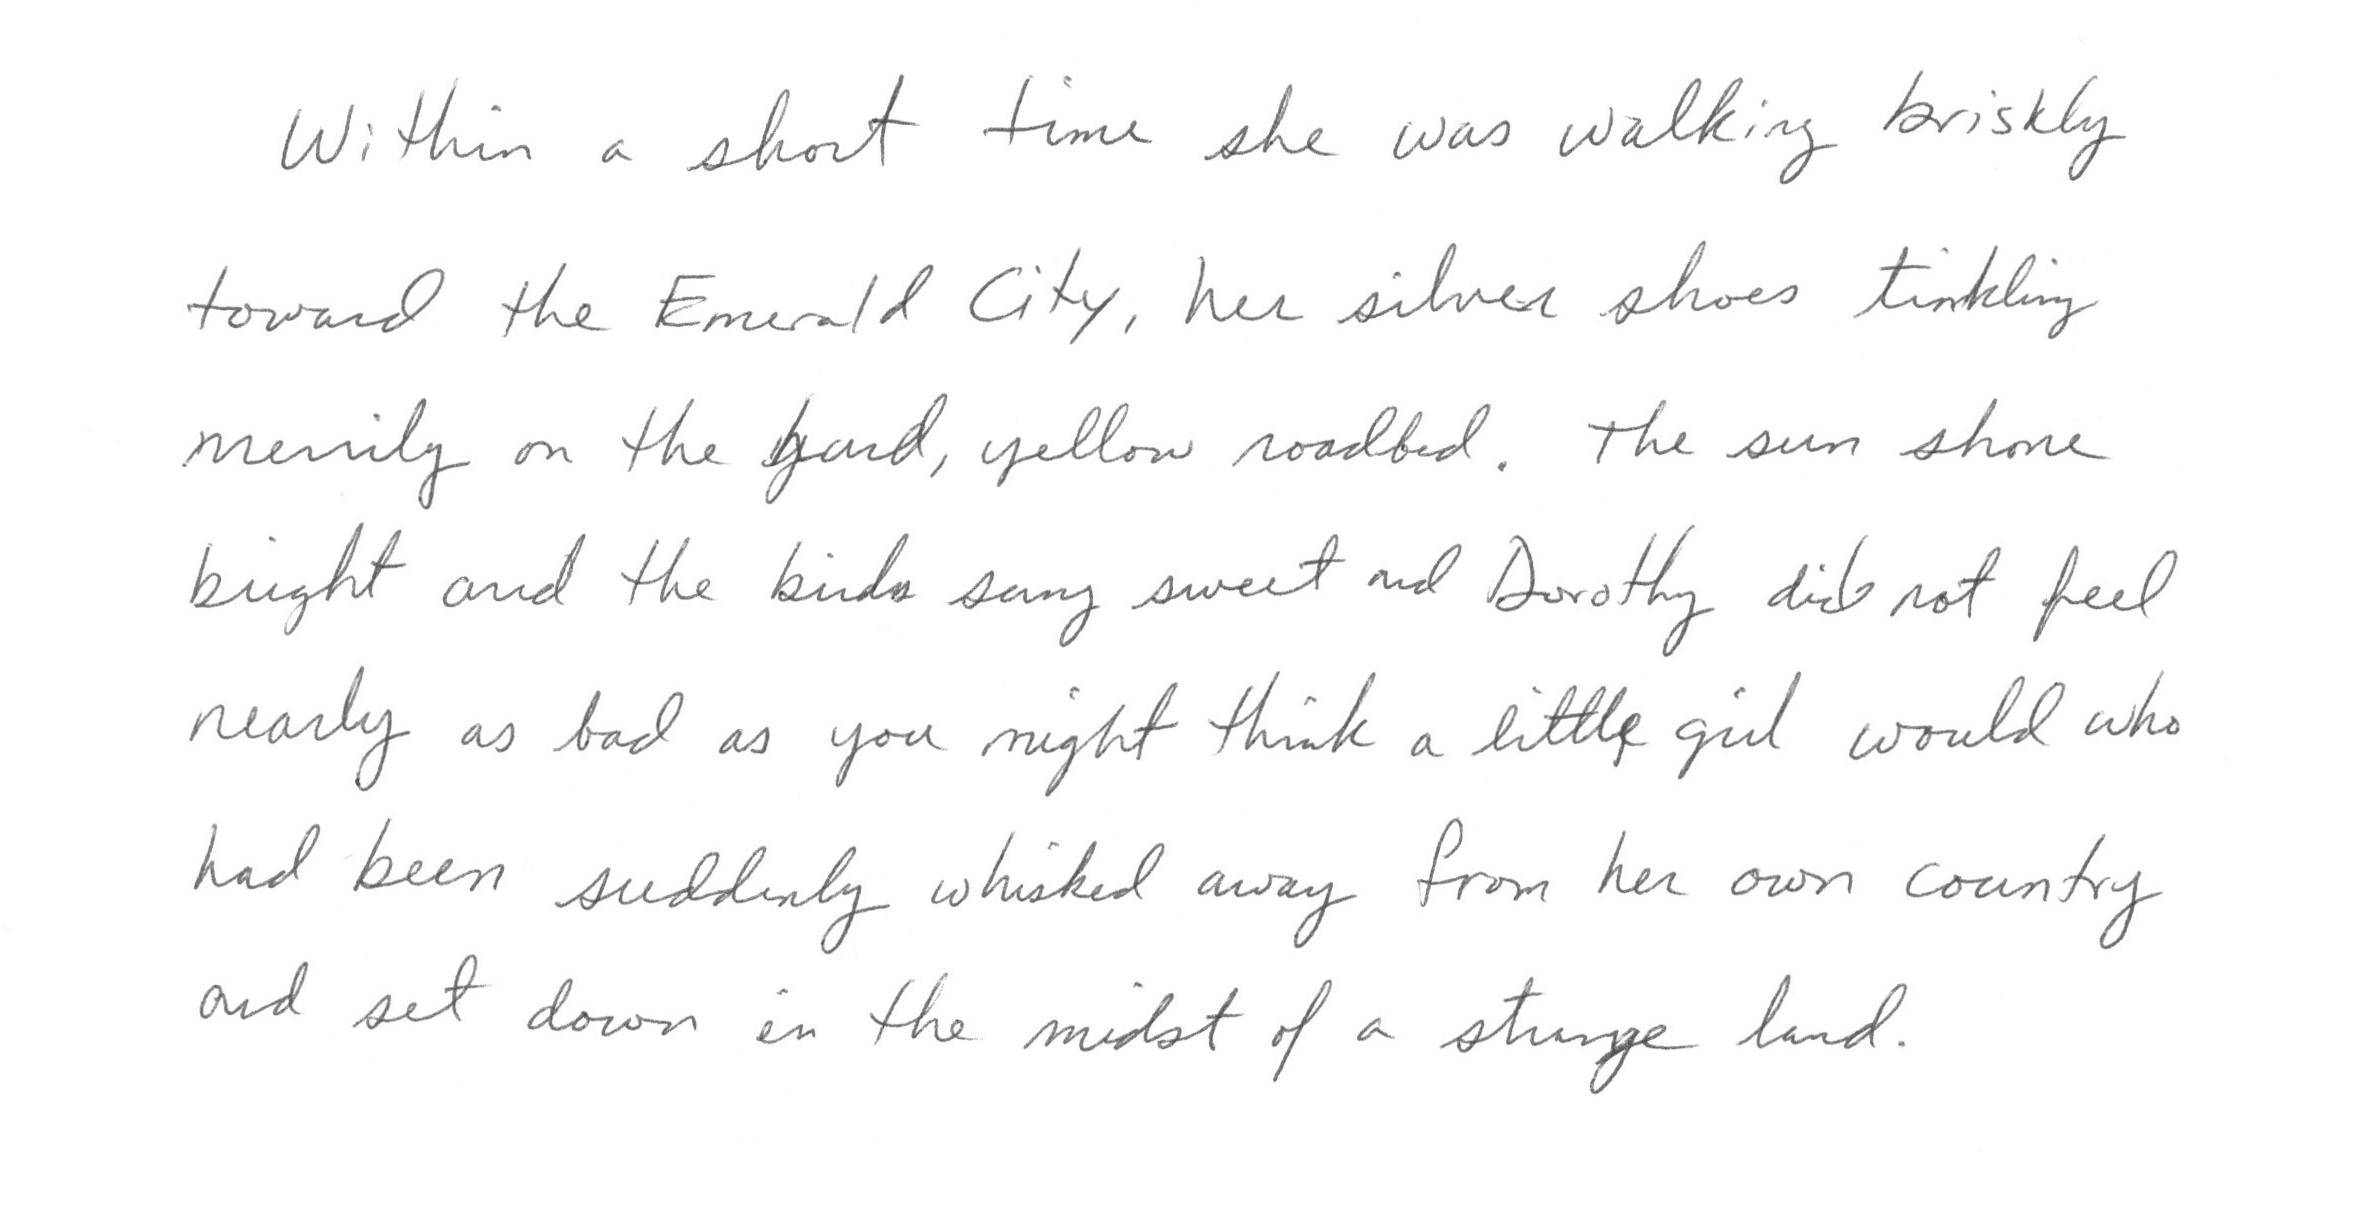 Within a short time she was walking briskly
toward the Emerald City, her silver shoes tinkling
merrily on the hard, yellow roadbed. The sun shone
bright and the birds sang sweet and Dorothy did not feel
nearly as bad as you might think a little girl would who
had been suddenly whisked away from her own country
and set down in the midst of a strange land.